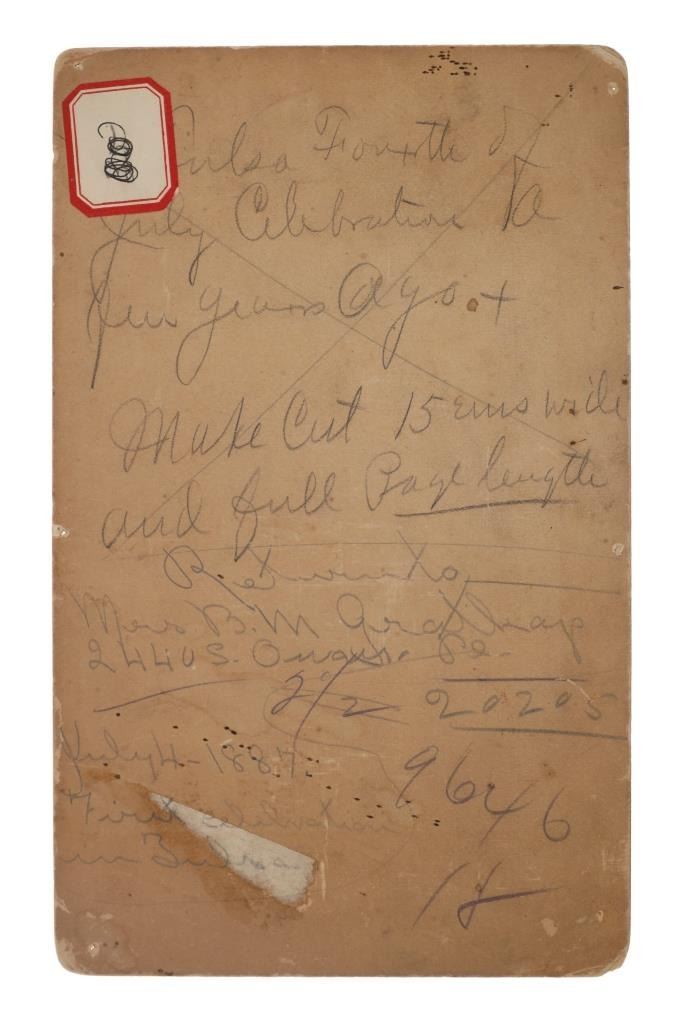 Tulsa Fourth of
July Celebration A
few years Ago +
Make Cut 15 ems wide
and full Page length
Return to
B. M
2440 S.
2/2 20205
July 4 - 1887.
9646
First celebration
in Tulsa